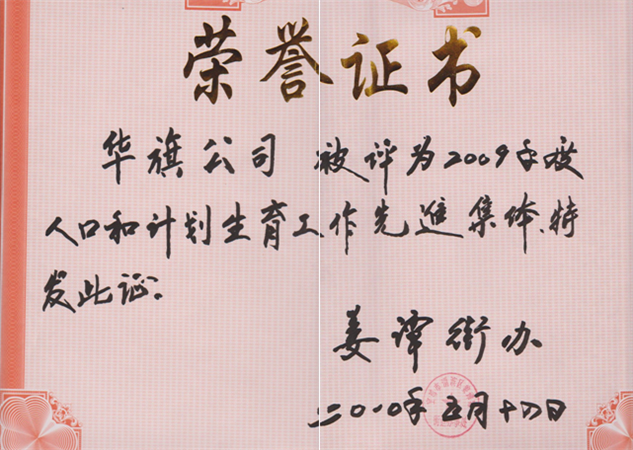 荣誉证书
华旗公司 被评为2009年度
人口和计划生育工作先進集体,特
发此证。
姜谭街办
二〇一〇年五月十四日